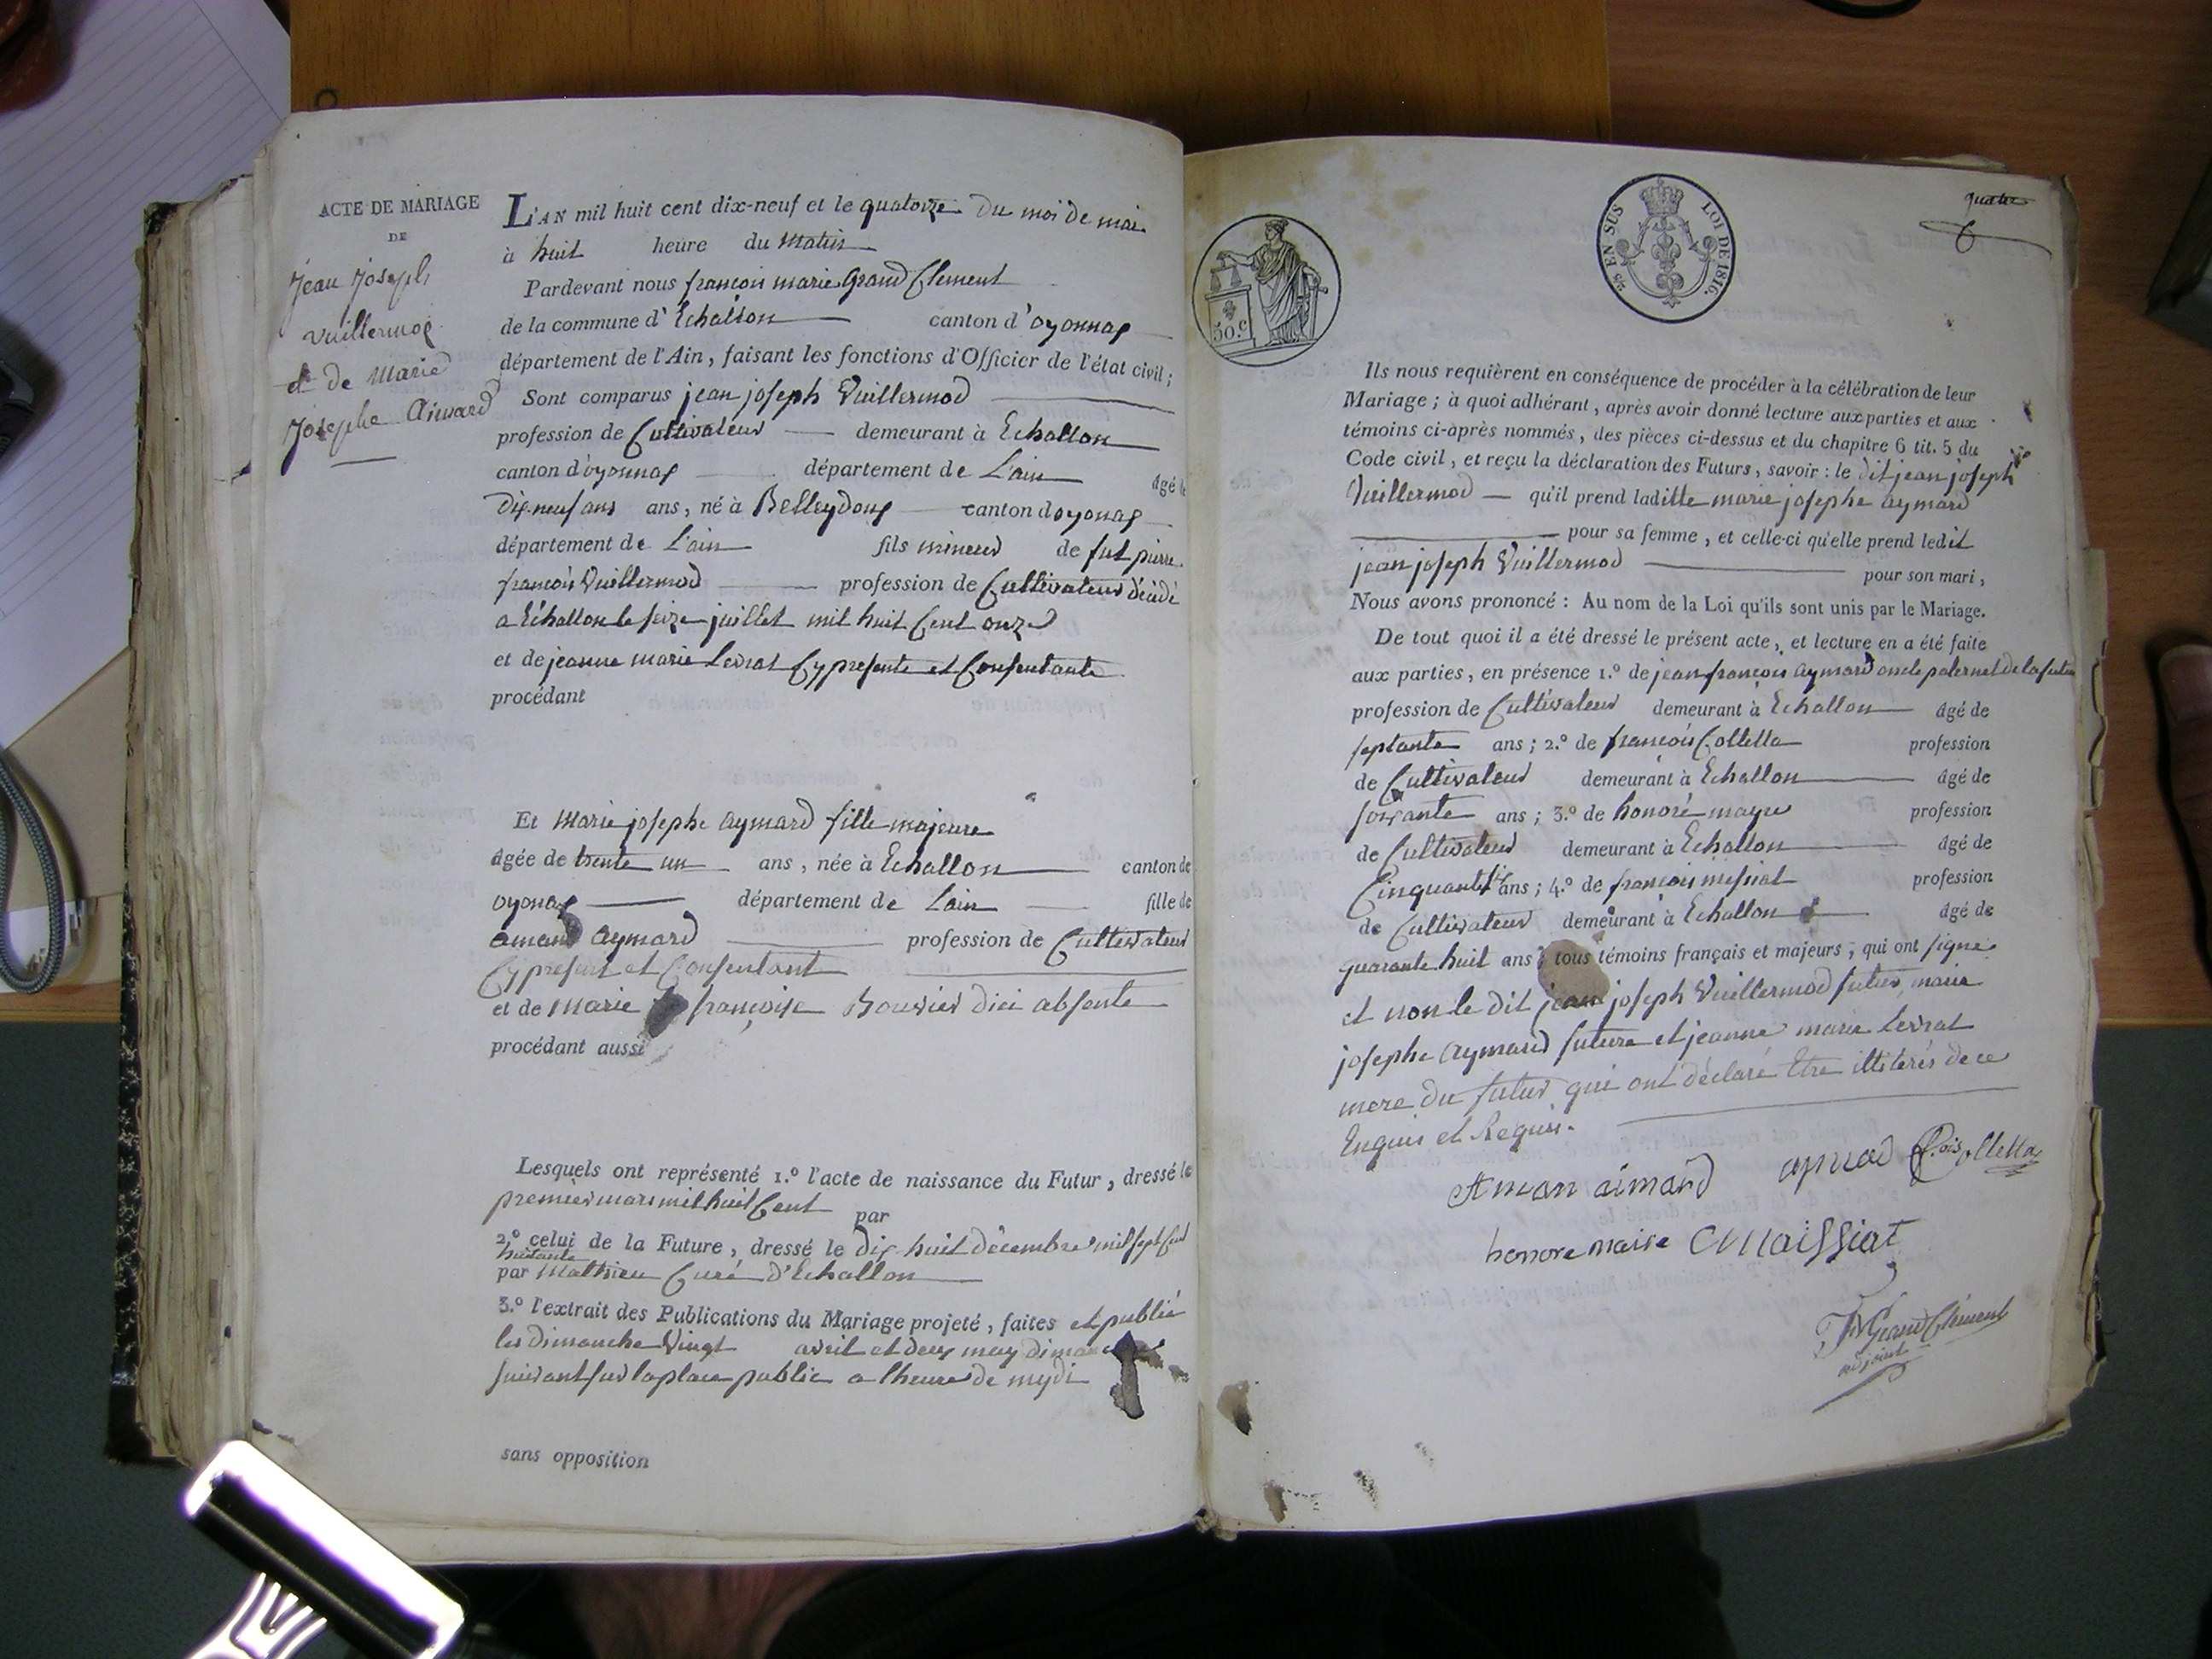 ACTE DE MARIAGE
DE
Jean Joseph
Vuillermoz
et de Marie
Josephe Aimard
L'AN mil huit cent dix-neuf et le quatorze du moi de mai
à huit heure du Matin
Pardevant nous françois marie Grand Clement
de la commune d'Echallon canton d'oyonnax
département de l'Ain, faisant les fonctions d'Officier de l'état civil;
Sont comparus jean joseph Vuillermod
profession de Cultivateur demeurant à Echallon
canton d'oyonnax département de L'ain âgé de
Dix-neuf ans ans, né à Belleydoux canton d'oyonax
département de L'ain fils mineur de fut pierre
françois Vuillermod profession de Cultivateur décédé
a Echallon le seize juillet mil huit Cent onze
et de jeanne marie Levrat Cy presente et Consentante
procédant
Et Marie josephe aymard fille majeure
âgée de trente un ans, née à Echallon canton de
oyonax département de Lain fille de
amand aymard profession de Cultivateur
Cy present et Consentant
et de Marie françoise Bouvier dici absente
procédant aussi
Lesquels ont représenté 1.° l'acte de naissance du Futur, dressé le
premier mars mil huit Cent par
2.° celui de la Future, dressé le dix huit décembre mil sept Cent
huitante
par Mathieu Curé d'Echallon
3.° l'extrait des Publications du Mariage projeté, faites et publié
les dimanche Vingt avril et deux may dimanche
suivant sur la place public a lheure de mydi
sans opposition
50.c
25 EN SUS LOI DE 1816.
quatre
Ils nous requièrent en conséquence de procéder à la célébration de leur
Mariage; à quoi adhérant, après avoir donné lecture aux parties et aux
témoins ci-après nommés, des pièces ci-dessus et du chapitre 6 tit. 5 du
Code civil, et reçu la déclaration des Futurs, savoir: le dit jean joseph
Vuillermod qu'il prend laditte marie josephe aymard
pour sa femme, et celle-ci qu'elle prend ledit
jean joseph Vuillermod pour son mari,
Nous avons prononcé: Au nom de la Loi qu'ils sont unis par le Mariage.
De tout quoi il a été dressé le présent acte, et lecture en a été faite
aux parties, en présence 1.° de jean françois aymard oncle paternel de la future
profession de Cultivateur demeurant à Echallon âgé de
septante ans; 2.° de françois Colletta profession
de Cultivateur demeurant à Echallon âgé de
soixante ans; 3.° de honoré mayre profession
de Cultivateur demeurant à Echallon âgé de
Cinquante ans; 4.° de françois messiat profession
de Cultivateur demeurant à Echallon âgé de
quarante huit ans; tous témoins français et majeurs, qui ont signé
et non le dit jean joseph Vuillermod futur, marie
josephe aymard future et jeanne marie Levrat
mere du futur qui ont déclaré Etre illiterés de ce
Enquis et Requis.
Aman aimard aymad f.ois Colletta
honore maire Maissiat
FMGrandClément
adjoint